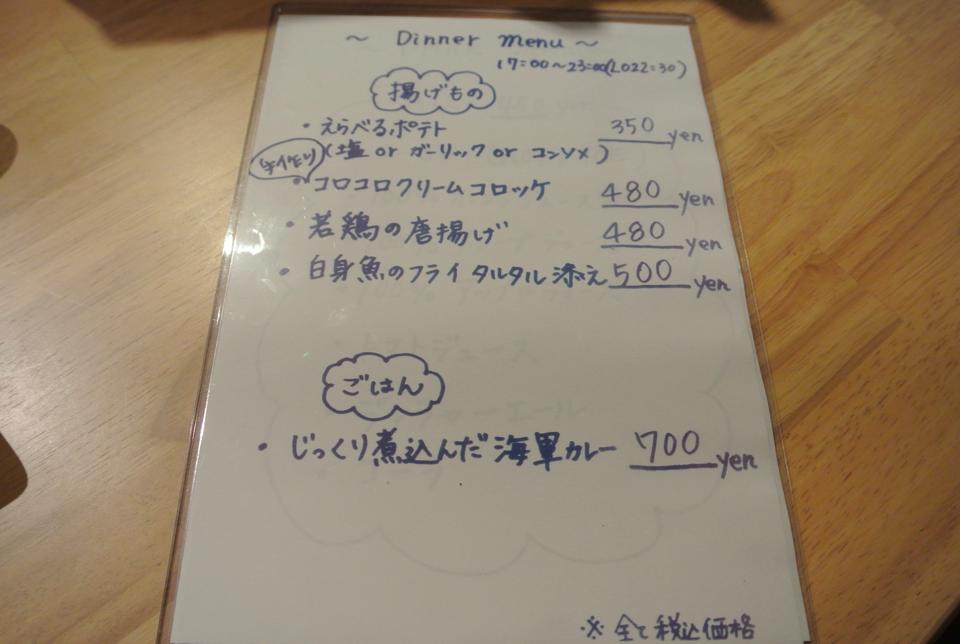 ~ Dinner Menu ~
17:00~23:00(LO22:30)
揚げもの
・えらべるポテト 350 yen
(塩 or ガーリック or コンソメ)
手作り
・コロコロクリームコロッケ 480 yen
・若鶏の唐揚げ 480 yen
・白身魚のフライタルタル添え 500 yen
ごはん
・じっくり煮込んだ海軍カレー 700 yen
※全て税込価格